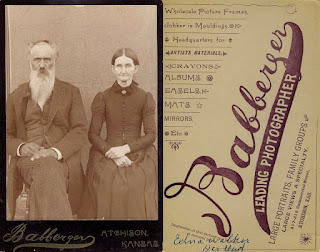 Babberger
ATCHISON,
KANSAS
Wholesale Picture Frames,
Jobber in Mouldings, Etc
Headquarters for
ARTISTS MATERIALS,
CRAYONS
ALBUMS
EASELS,
MATS
MIRRORS,
Etc
Babberger
LEADING PHOTOGRAPHER
LARGE PORTRAITS, FAMILY GROUPS
LARGE VIEWS A SPECIALTY.
ATCHISON, KAS.